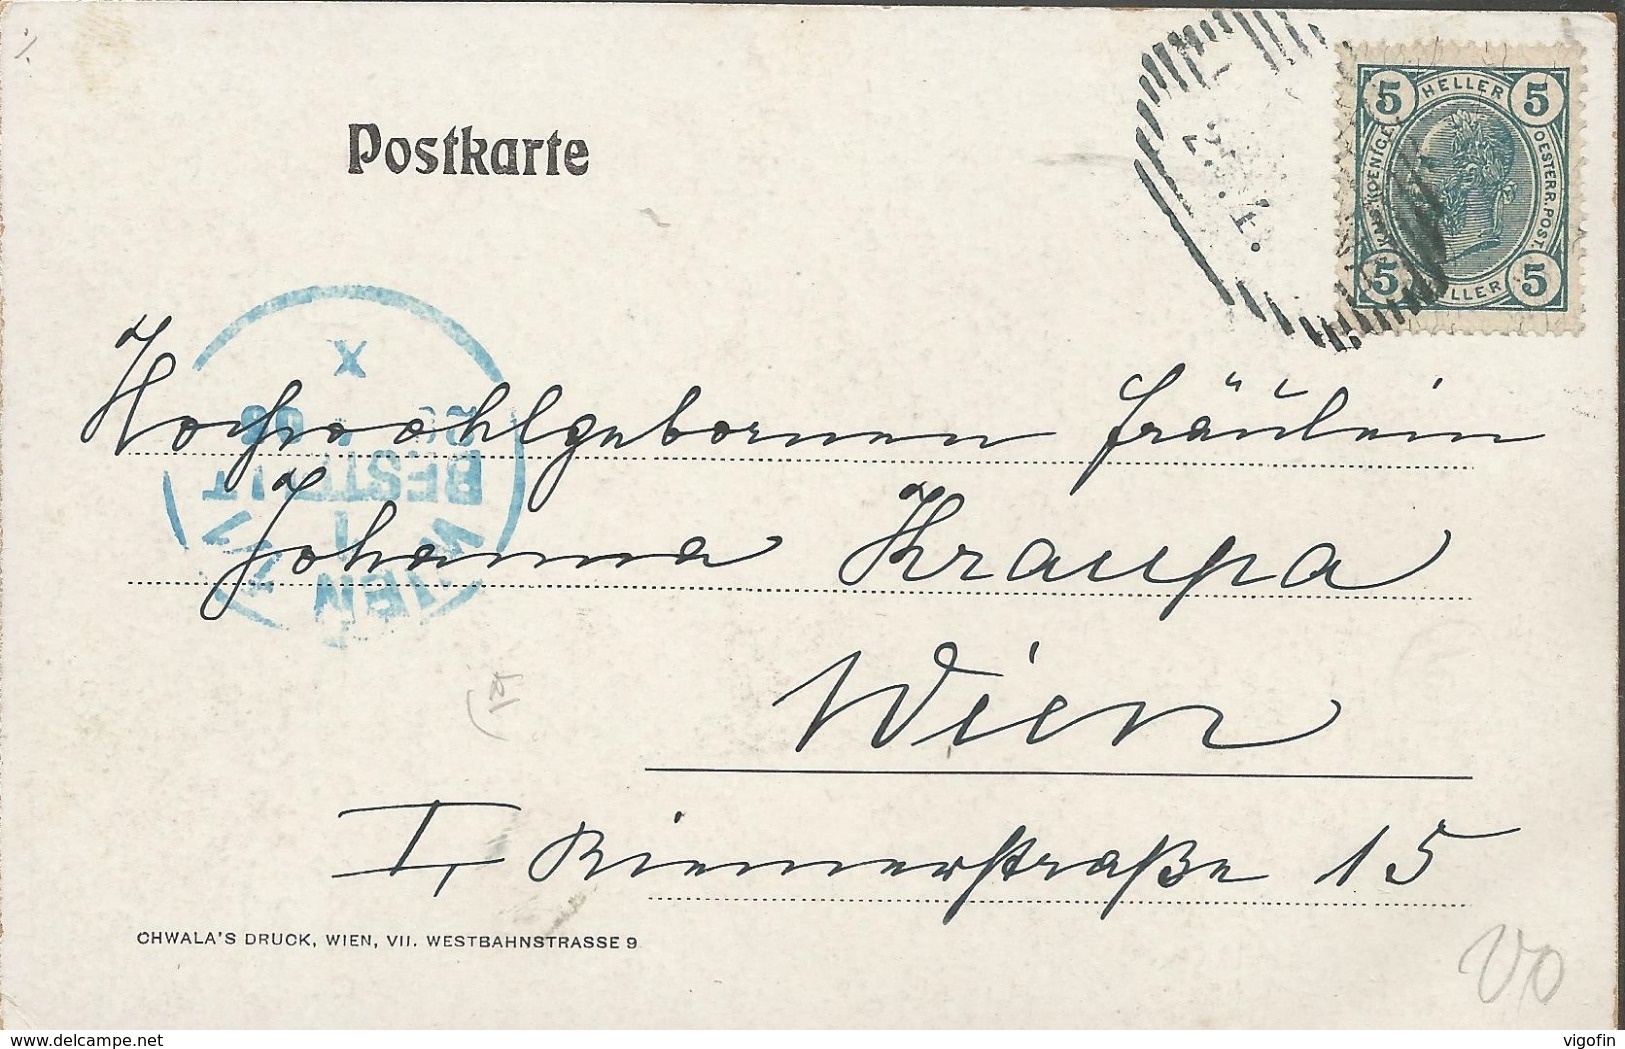 Postkarte
5 HELLER 5
OESTERR. POST.
5 HELLER 5
X
BESTELLT
WIEN
Hochwohlgebornen Fräulein
Johanna Kraupa
Wien
I, Riemerstraße 15
CHWALA'S DRUCK, WIEN, VII. WESTBAHNSTRASSE 9
VO
delcampe.net
vigofin